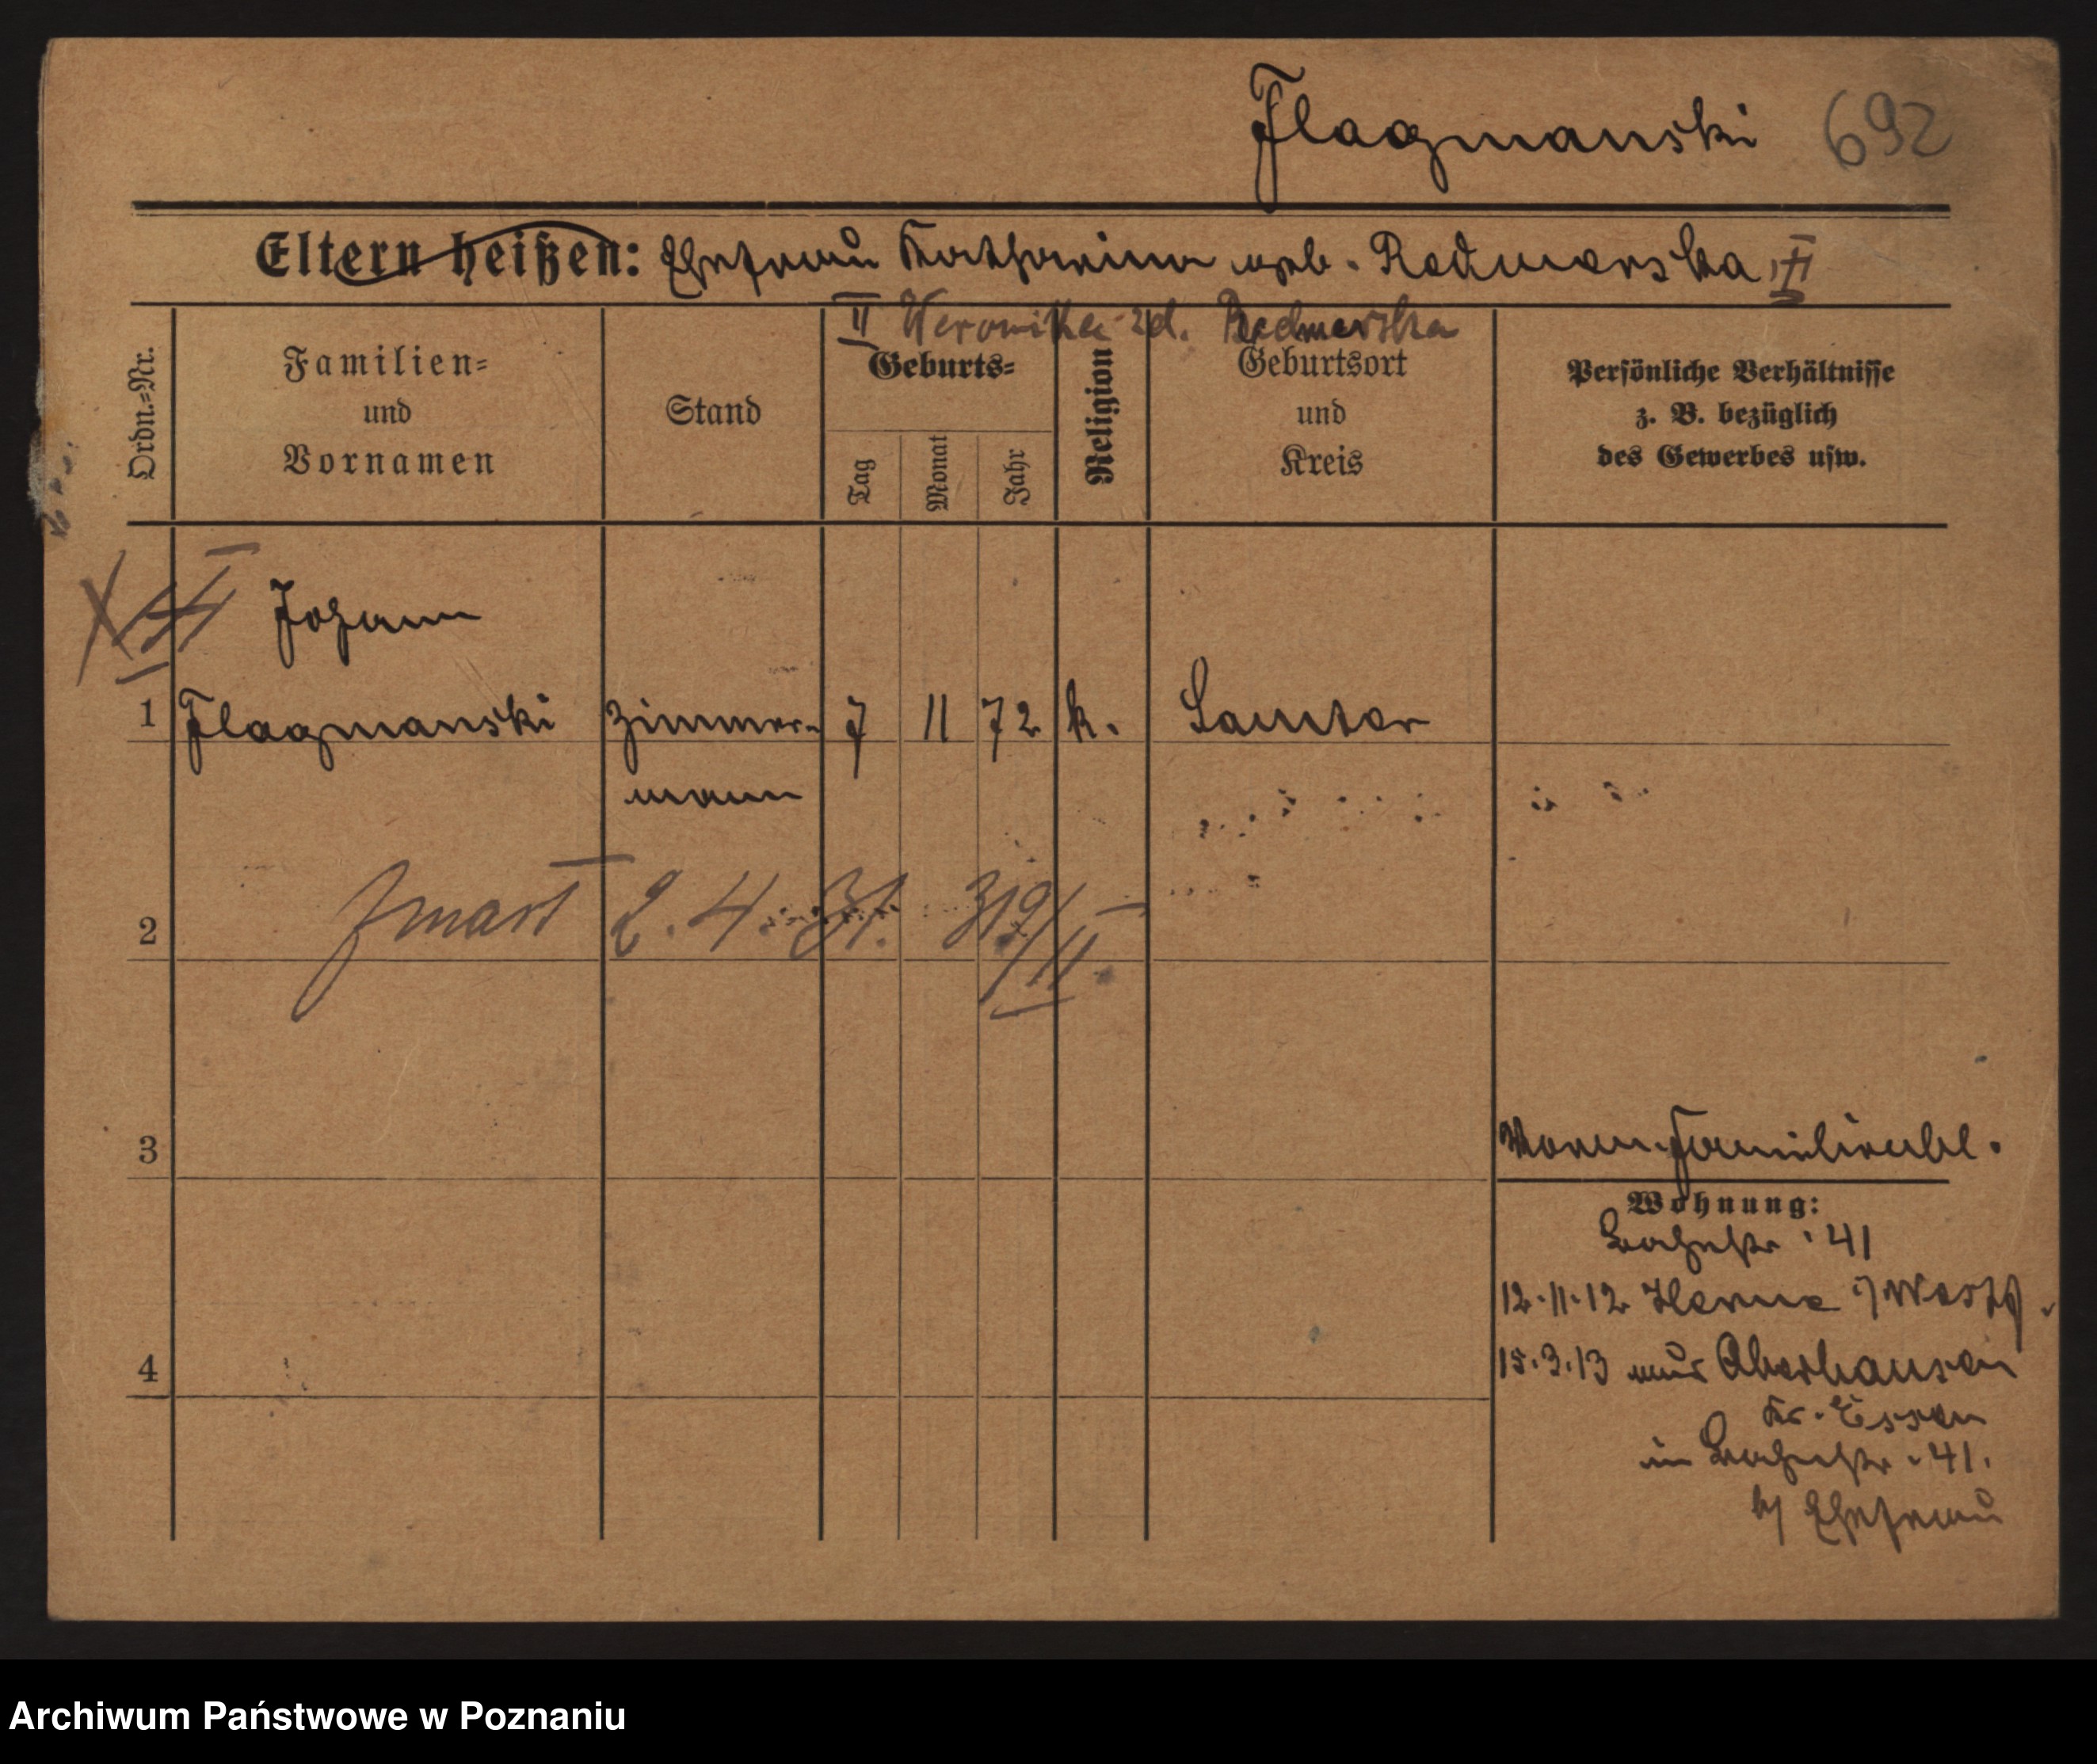 Flagmanski 692
Eltern heißen: Ehefrau Katharina geb. Radmarska I
II Weronika zd. Radmarska
Ordn.-Nr.
Familien=
und
Vornamen
Stand
Geburts=
Tag
Monat
Jahr
Religion
Geburtsort
und
Kreis
Persönliche Verhältnisse
z. B. bezüglich
des Gewerbes usw.
Johann
1 Flagmanski Zimmer- 7 11 72 k. Samter
mann
2 Zmarł 2.4.31. 319/II.
3
Familienbl.
Wohnung:
Bahnstr. 41
12.11.12 Herne i/Westf.
15.3.13 aus Oberhausen
Kr. Essen
in Bahnstr. 41.
b/ Ehefrau
4
Archiwum Państwowe w Poznaniu